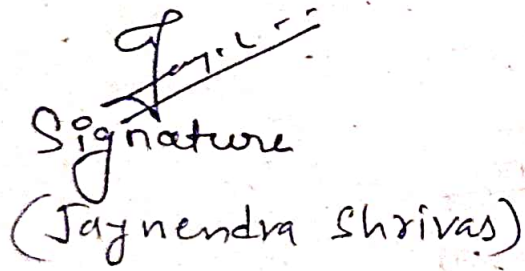 Signature
(Jaynendra Shrivas)